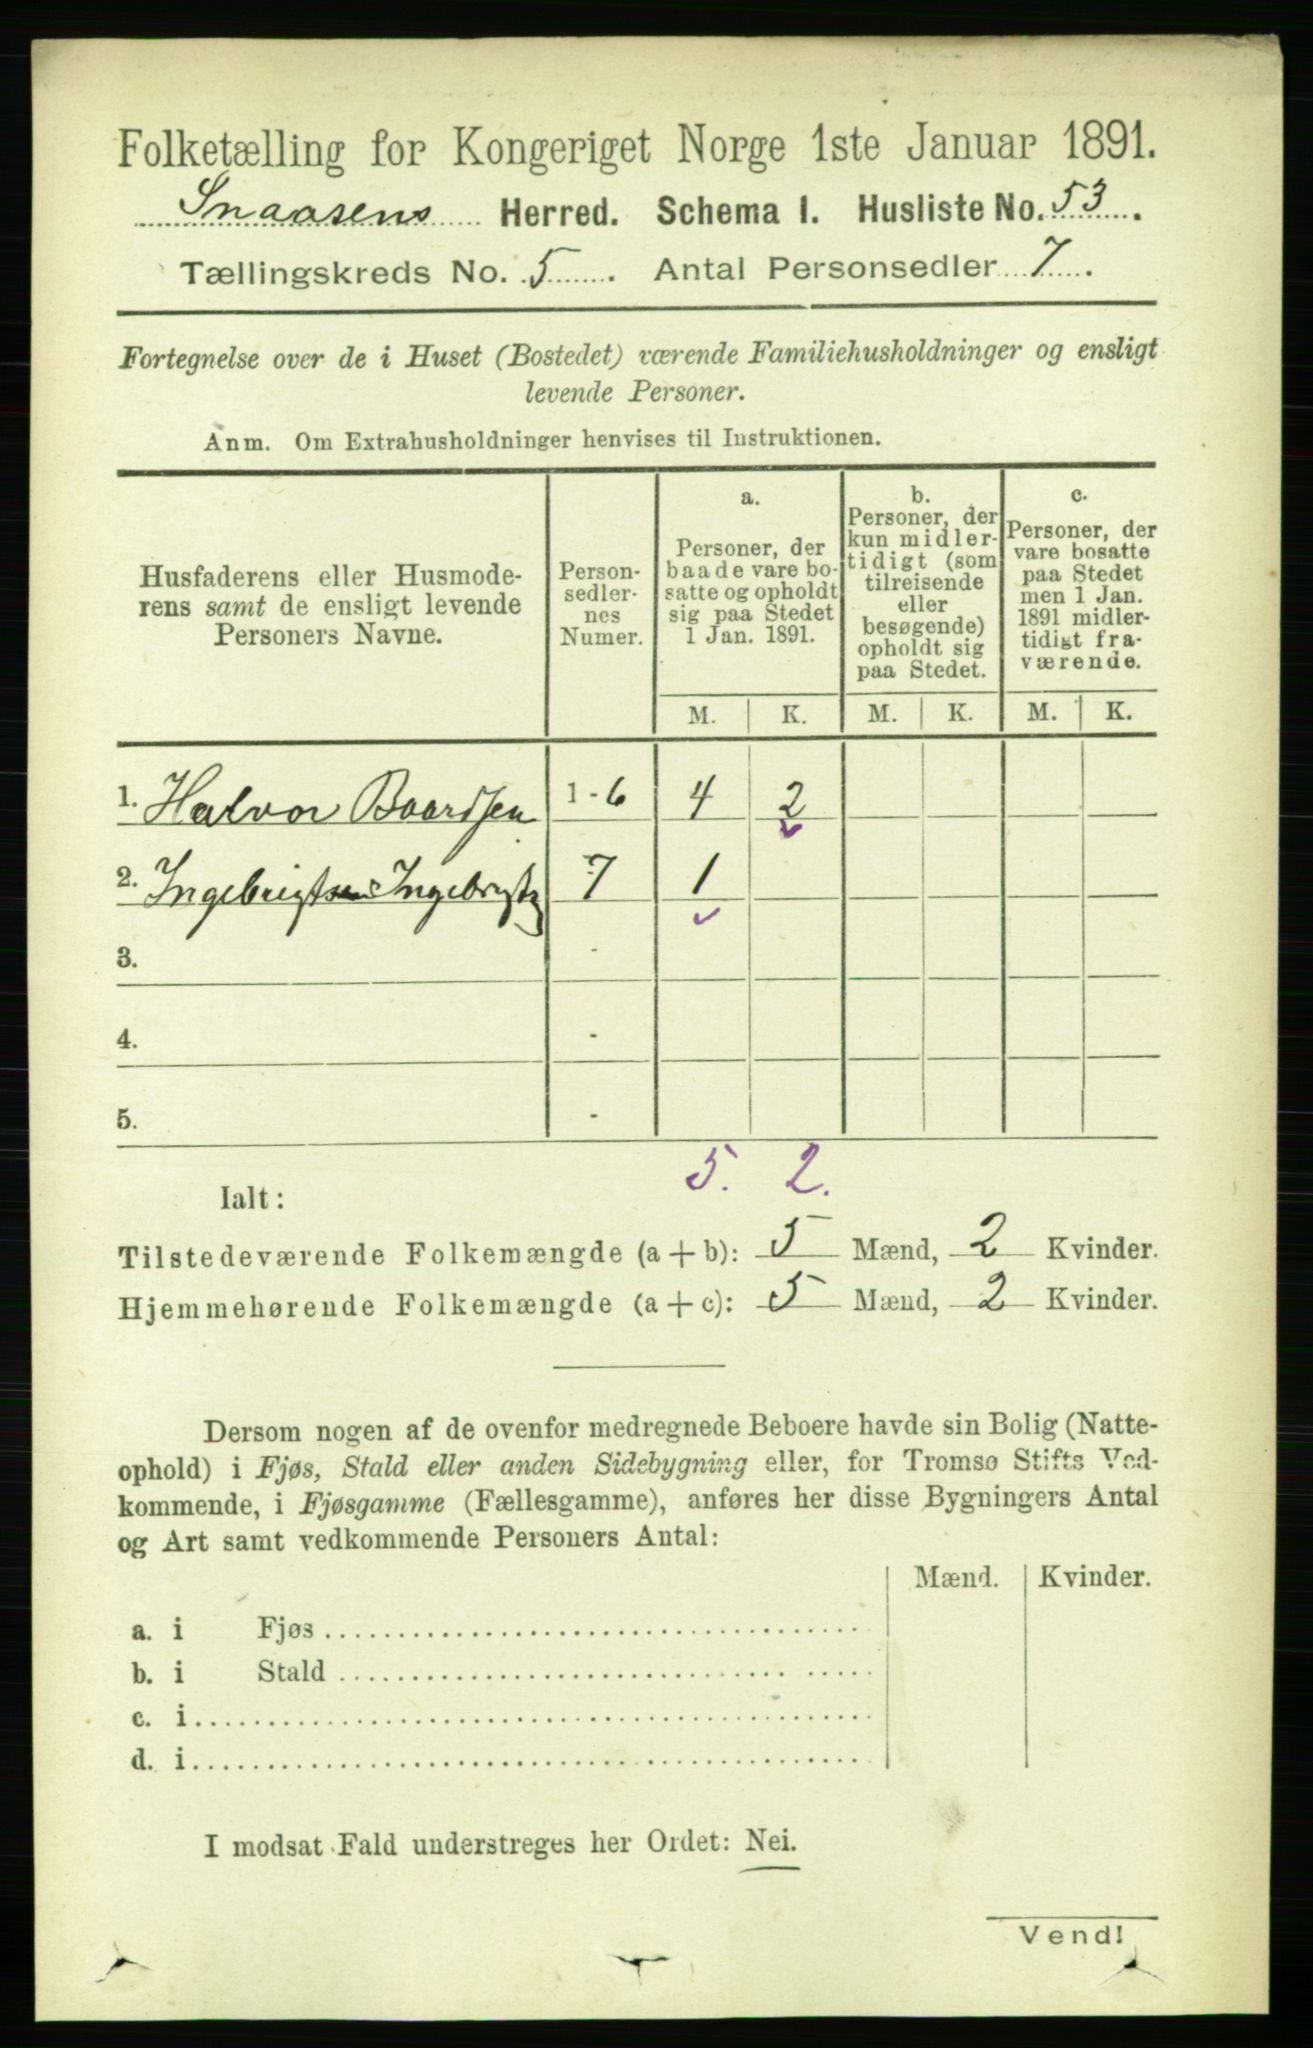 Folketælling for Kongeriget Norge 1ste Januar 1891.
Snaasens Herred. Schema I. Husliste No. 53.
Tællingskreds No. 5. Antal Personsedler 7.
Fortegnelse over de i Huset (Bostedet) værende Familiehusholdninger og ensligt
levende Personer.
Anm. Om Extrahusholdninger henvises til Instruktionen.
Husfaderens eller Husmode-
rens samt de ensligt levende
Personers Navne.
Person-
sedler-
nes
Numer.
a.
Personer, der
baade vare bo-
satte og opholdt
sig paa Stedet
1 Jan. 1891.
b.
Personer, der
kun midler-
tidigt (som
tilreisende
eller
besøgende)
opholdt sig
paa Stedet.
c.
Personer, der
vare bosatte
paa Stedet
men 1 Jan.
1891 midler-
tidigt fra-
værende.
M. K. M. K. M. K.
1. Halvor Baardsen 1-6 4 2
2. Ingebrigtsen Ingebrigt 7 1
3. -
4. -
5. -
5. 2.
Ialt:
Tilstedeværende Folkemængde (a + b): 5 Mænd, 2 Kvinder.
Hjemmehørende Folkemængde (a + c): 5 Mænd, 2 Kvinder.
Dersom nogen af de ovenfor medregnede Beboere havde sin Bolig (Natte-
ophold) i Fjøs, Stald eller anden Sidebygning eller, for Tromsø Stifts Ved-
kommende, i Fjøsgamme (Fællesgamme), anføres her disse Bygningers Antal
og Art samt vedkommende Personers Antal:
Mænd. Kvinder.
a. i Fjøs
b. i Stald
c. i
d. i
I modsat Fald understreges her Ordet: Nei.
Vend!